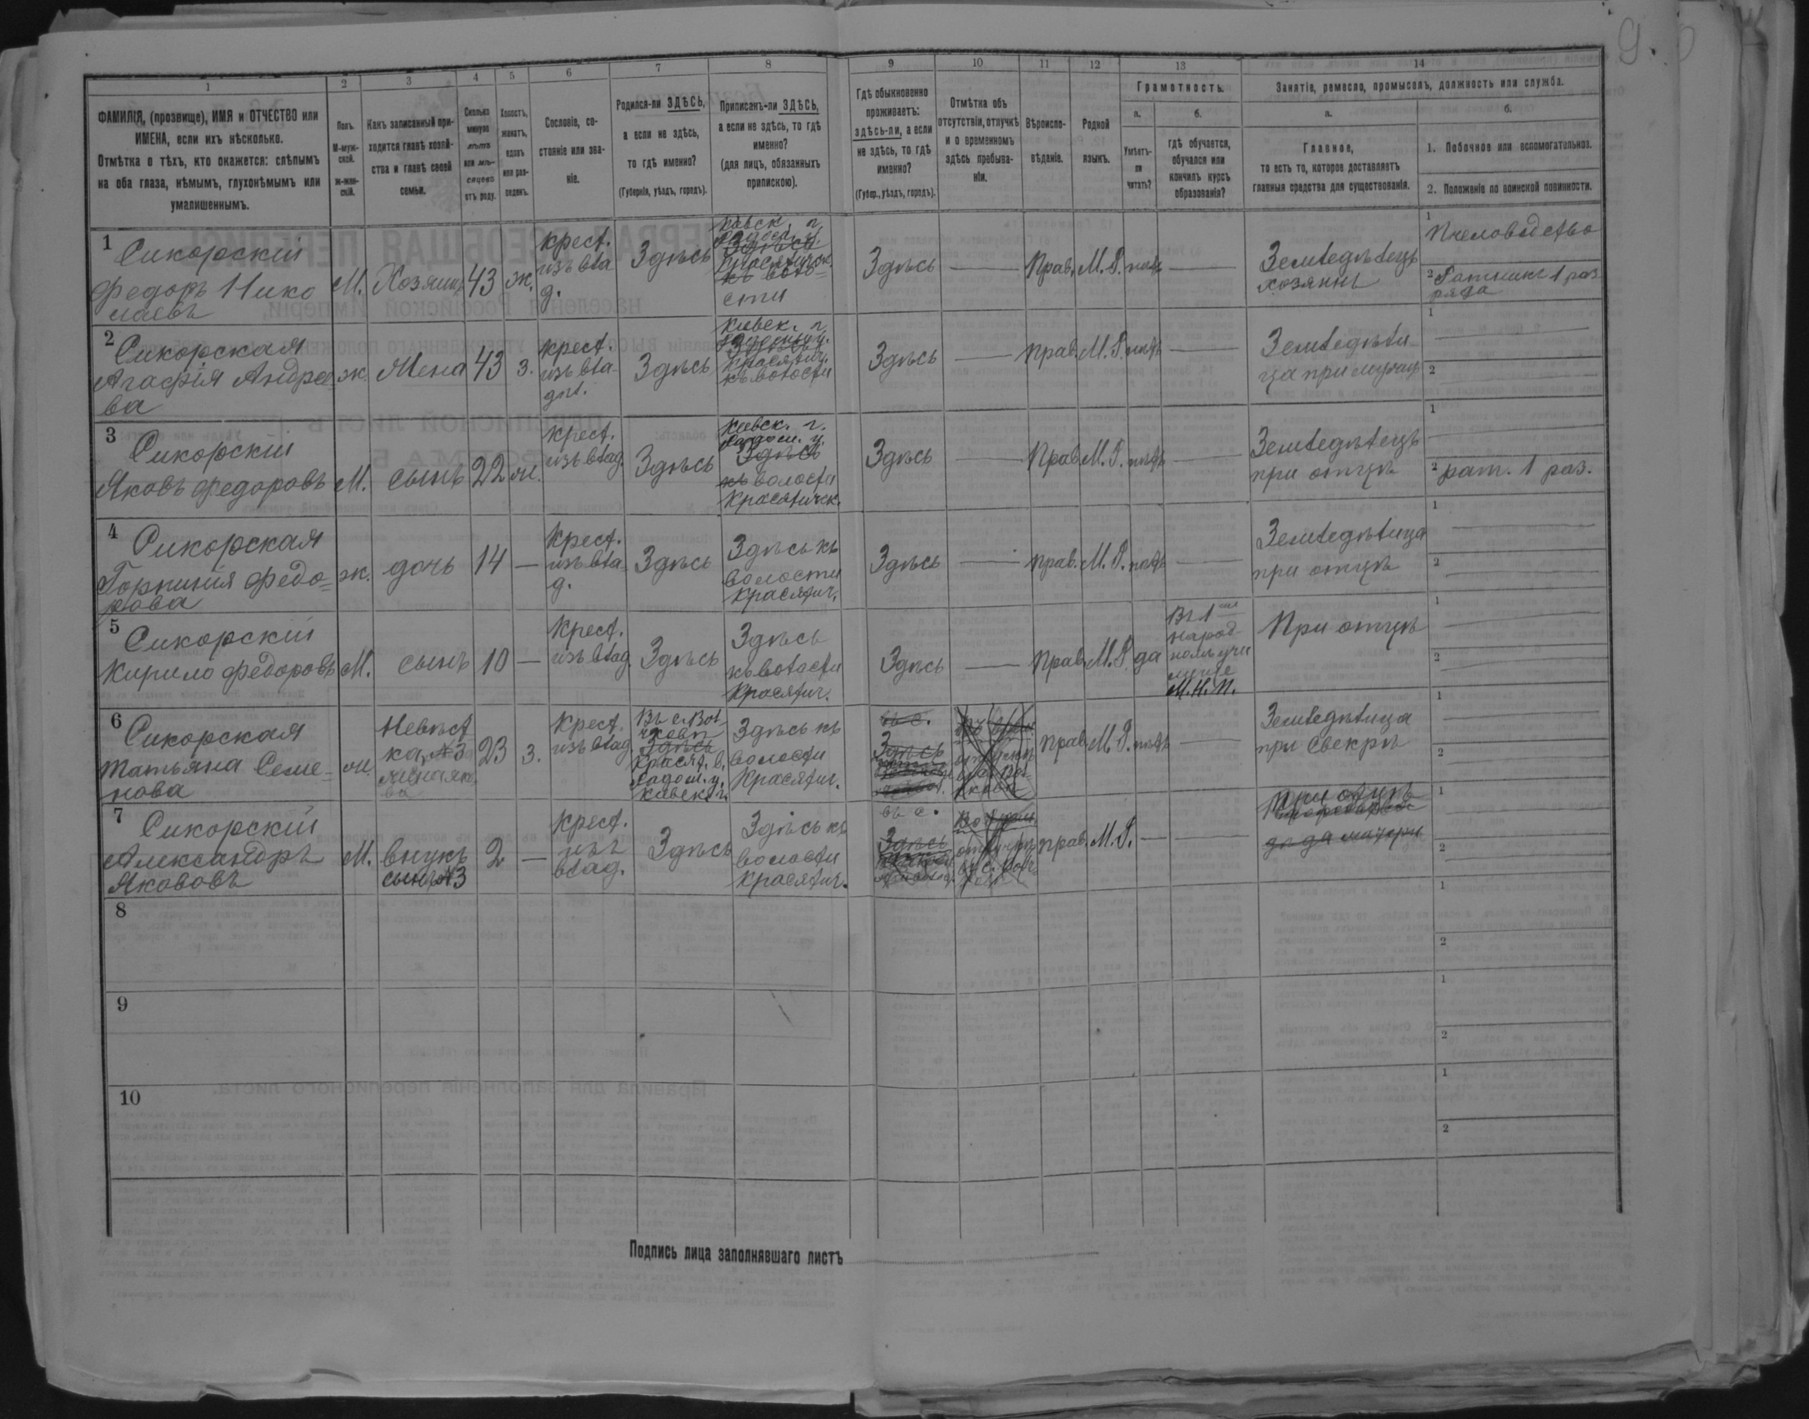 1 2 3 4 5 6 7 8 9 10 11 12 13 14
ФАМИЛІЯ, (прозвище), ИМЯ и ОТЧЕСТВО или
ИМЕНА, если ихъ нѣсколько.
Отмѣтка о тѣхъ, кто окажется: слѣпымъ
на оба глаза, нѣмымъ, глухонѣмымъ или
умалишеннымъ.
Полъ.
М-муж-
ской.
Ж-жен-
скій.
Какъ записанный при-
ходится главѣ хозяй-
ства и главѣ своей
семьи.
Сколько
минуло
лѣтъ
или мѣ-
сяцевъ
отъ роду.
Холостъ,
женатъ,
вдовъ
или раз-
веденъ.
Сословіе, со-
стояніе или зва-
ніе.
Родился-ли ЗДѢСЬ,
а если не здѣсь,
то гдѣ именно?
(Губернія, уѣздъ, городъ).
Приписанъ-ли ЗДѢСЬ,
а если не здѣсь, то гдѣ
именно?
(для лицъ, обязанныхъ
припискою).
Гдѣ обыкновенно
проживаетъ:
здѣсь-ли, а если
не здѣсь, то гдѣ
именно?
(Губер., уѣздъ, городъ).
Отмѣтка объ
отсутствіи, отлучкѣ
и о временномъ
здѣсь пребыва-
ніи.
Вѣроиспо-
вѣданіе.
Родной
языкъ.
Грамотность.
а.
Умѣетъ-
ли
читать?
б.
гдѣ обучается,
обучался или
кончилъ курсъ
образованія?
Занятіе, ремесло, промыселъ, должность или служба.
а.
Главное,
то есть то, которое доставляетъ
главныя средства для существованія.
б.
1. Побочное или вспомогательное.
2. Положеніе по воинской повинности.
1
Сикорскій
Федоръ Нико
лаевъ
М.
Хозяинъ
43
ж.
крест.
изъ вла
д.
Здѣсь
Киевск. г.
Радом. у.
Здѣсь
Красятич.
къ воло-
сти
Здѣсь
Прав.
М. Р.
нѣтъ
Земледѣлецъ
хозяинъ
1
Пчеловодство
2 Ратникъ 1 раз
ряда
2
Сикорская
Агафія Андрее
ва
ж.
Жена
43
з.
крест.
изъ вла
дѣл.
Здѣсь
Киевск. г.
Радом. у.
Здѣсь
Красятич.
къ волости
Здѣсь
прав.
М. Р.
нѣтъ
Земледѣли-
ца при мужѣ
1
2
3
Сикорскій
Яковъ Федоровъ
М.
сынъ
22
ж.
крест.
изъ влад.
Здѣсь
Киевск. г.
Радом. у.
Здѣсь
къ волости
Красятичск.
Здѣсь
Прав.
М. Р.
нѣтъ
Земледѣлецъ
при отцѣ
1
2 рат. 1 раз.
4
Сикорская
Горпина Федо-
рова
ж.
дочь
14
Крест.
изъ вла
д.
Здѣсь
Здѣсь къ
волости
Красятич.
Здѣсь
прав.
М. Р.
нѣтъ
Земледѣлица
при отцѣ
1
2
5
Сикорскій
Кирило Федоровъ
М.
сынъ
10
Крест.
изъ влад
Здѣсь
Здѣсь
къ волости
Красятич.
Здѣсь
Прав.
М. Р.
да
Въ 1
народ
номъ учи
лищѣ
М. Н. П.
При отцѣ
1
2
6
Сикорская
Татьяна Семе-
нова
ж.
Невѣст
ка, №3
жена
23
з.
Крест.
изъ влад
Здѣсь
Красят. в.
Радом. у.
Киевск. г.
Здѣсь къ
волости
Красятич.
въ с.
Здѣсь
прав.
М. Р.
нѣтъ
Земледѣлица
при свекрѣ
1
2
7
Сикорскій
Александръ
Якововъ
М.
внукъ
сынъ №3
2
Крест.
изъ
влад.
Здѣсь
Здѣсь къ
волости
Красятич.
въ с.
Здѣсь
прав.
М. Р.
При отцѣ
1
2
8
1
2
9
1
2
10
1
2
Подпись лица заполнявшаго листъ